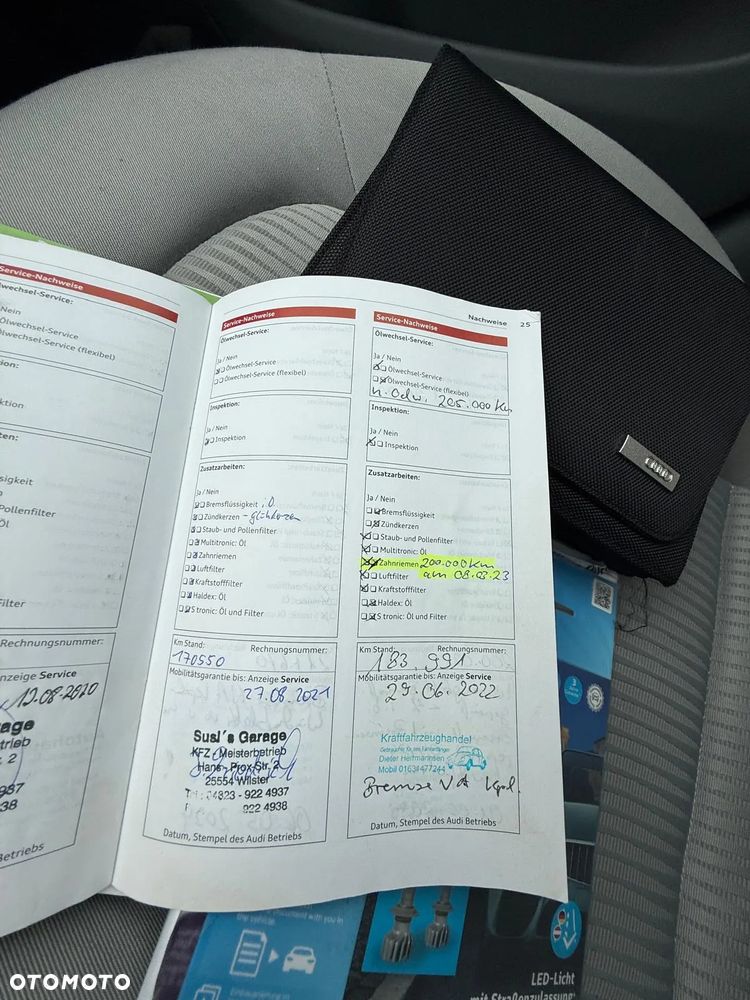 Service-Nachweise
Ölwechsel-Service:
Nein
Ölwechsel-Service
Ölwechsel-Service (flexibel)
Pollenfilter
Öl
Rechnungsnummer:
Anzeige Service
12.08.2020
Betriebs
Service-Nachweise
Ölwechsel-Service:
Ja / Nein
Ölwechsel-Service
Ölwechsel-Service (flexibel)
Inspektion:
Ja / Nein
Inspektion
Zusatzarbeiten:
Ja / Nein
Bremsflüssigkeit
Zündkerzen - glühkerzen
Staub- und Pollenfilter
Multitronic: Öl
Zahnriemen
Luftfilter
Kraftstofffilter
Haldex: Öl
S tronic: Öl und Filter
Km Stand: Rechnungsnummer:
170550
Mobilitätsgarantie bis: Anzeige Service
27.08.2021
Susi's Garage
KFZ - Meisterbetrieb
Hans-Prox-Str. 2
25554 Wilster
Tel.: 04823 - 922 4937
922 4938
Datum, Stempel des Audi Betriebs
Nachweise 25
Service-Nachweise
Ölwechsel-Service:
Ja / Nein
Ölwechsel-Service
Ölwechsel-Service (flexibel)
205.000 Km
Inspektion:
Ja / Nein
Inspektion
Zusatzarbeiten:
Ja / Nein
Bremsflüssigkeit
Zündkerzen
Staub- und Pollenfilter
Multitronic: Öl
Zahnriemen 200.000 Km
Luftfilter am 08.03.23
Kraftstofffilter
Haldex: Öl
S tronic: Öl und Filter
Km Stand: Rechnungsnummer:
183.991
Mobilitätsgarantie bis: Anzeige Service
29.06.2022
Kraftfahrzeughandel
Dieter Hertmannsen
Mobil 01631477244
Bremse VA kpl.
Datum, Stempel des Audi Betriebs
LED-Licht
mit Straßenzulassung
OTOMOTO